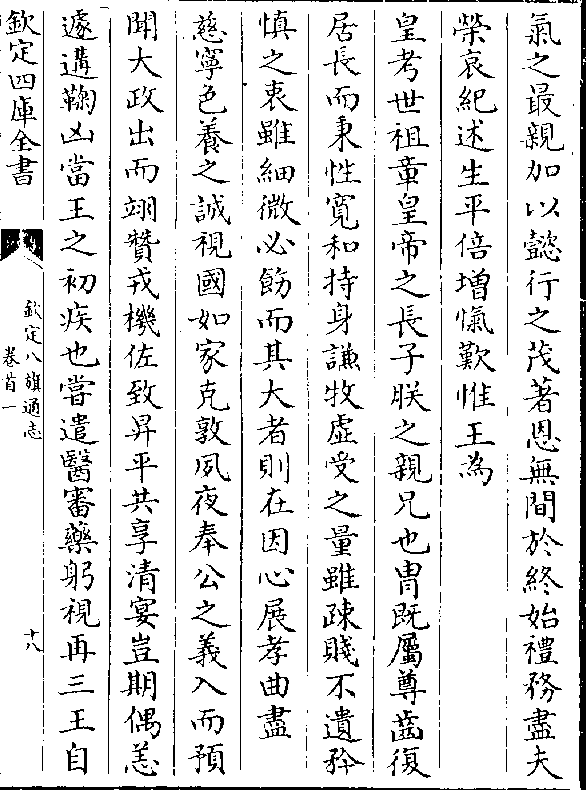 氣之最親加以懿行之茂著恩無間於終始禮務盡夫
榮哀紀述生平倍增愾歎惟王為
皇考世祖章皇帝之長子朕之親兄也胄既屬尊齒復
居長而秉性寬和持身謙牧虛受之量雖疎賤不遺矜
慎之衷雖細微必飭而其大者則在因心展孝曲盡
慈寧色養之誠視國如家克敦夙夜奉公之義入而預
聞大政出而翊贊戎機佐致昇平共享清宴豈期偶恙
遽遘鞠凶當王之初疾也嘗遣醫審藥躬視再三王自
欽定四庫全書
欽定八旗通志
卷首一
十八